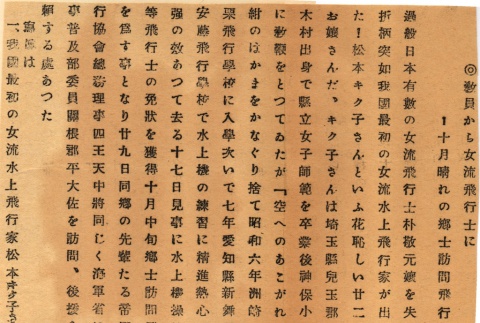 ◎教員から女流飛行士に
ー十月晴れの鄕士訪問飛行
過般日本有數の女流飛行士朴敬元孃を失
折柄突如我國最初の女流水上飛行家が出
た！松本キク子さんといふ花恥しい廿二
お孃さんだ、キク子さんは埼玉縣兒玉郡
木村出身で縣立女子師範を卒業後神保小
に敎鞭をとつてゐたが『空へのあこがれ
紺のはかまをかなぐり捨て昭和六年洲崎
栗飛行學校に入學次いで七年愛知縣新舞
安藤飛行學校で水上機の練習に精進熱心
强の效あつて去る十七日見事に水上操
等飛行士の免狀を獲得十月中旬鄕士訪問
を爲す事となり廿九日同鄕の先輩たる帝
行協會總務理事四王天中將同じく海軍省
事普及部委員關根郡平大佐を訪問、後援
賴する處あつた
寫眞は
一、我國最初の女流水上飛行家松本キク子さ